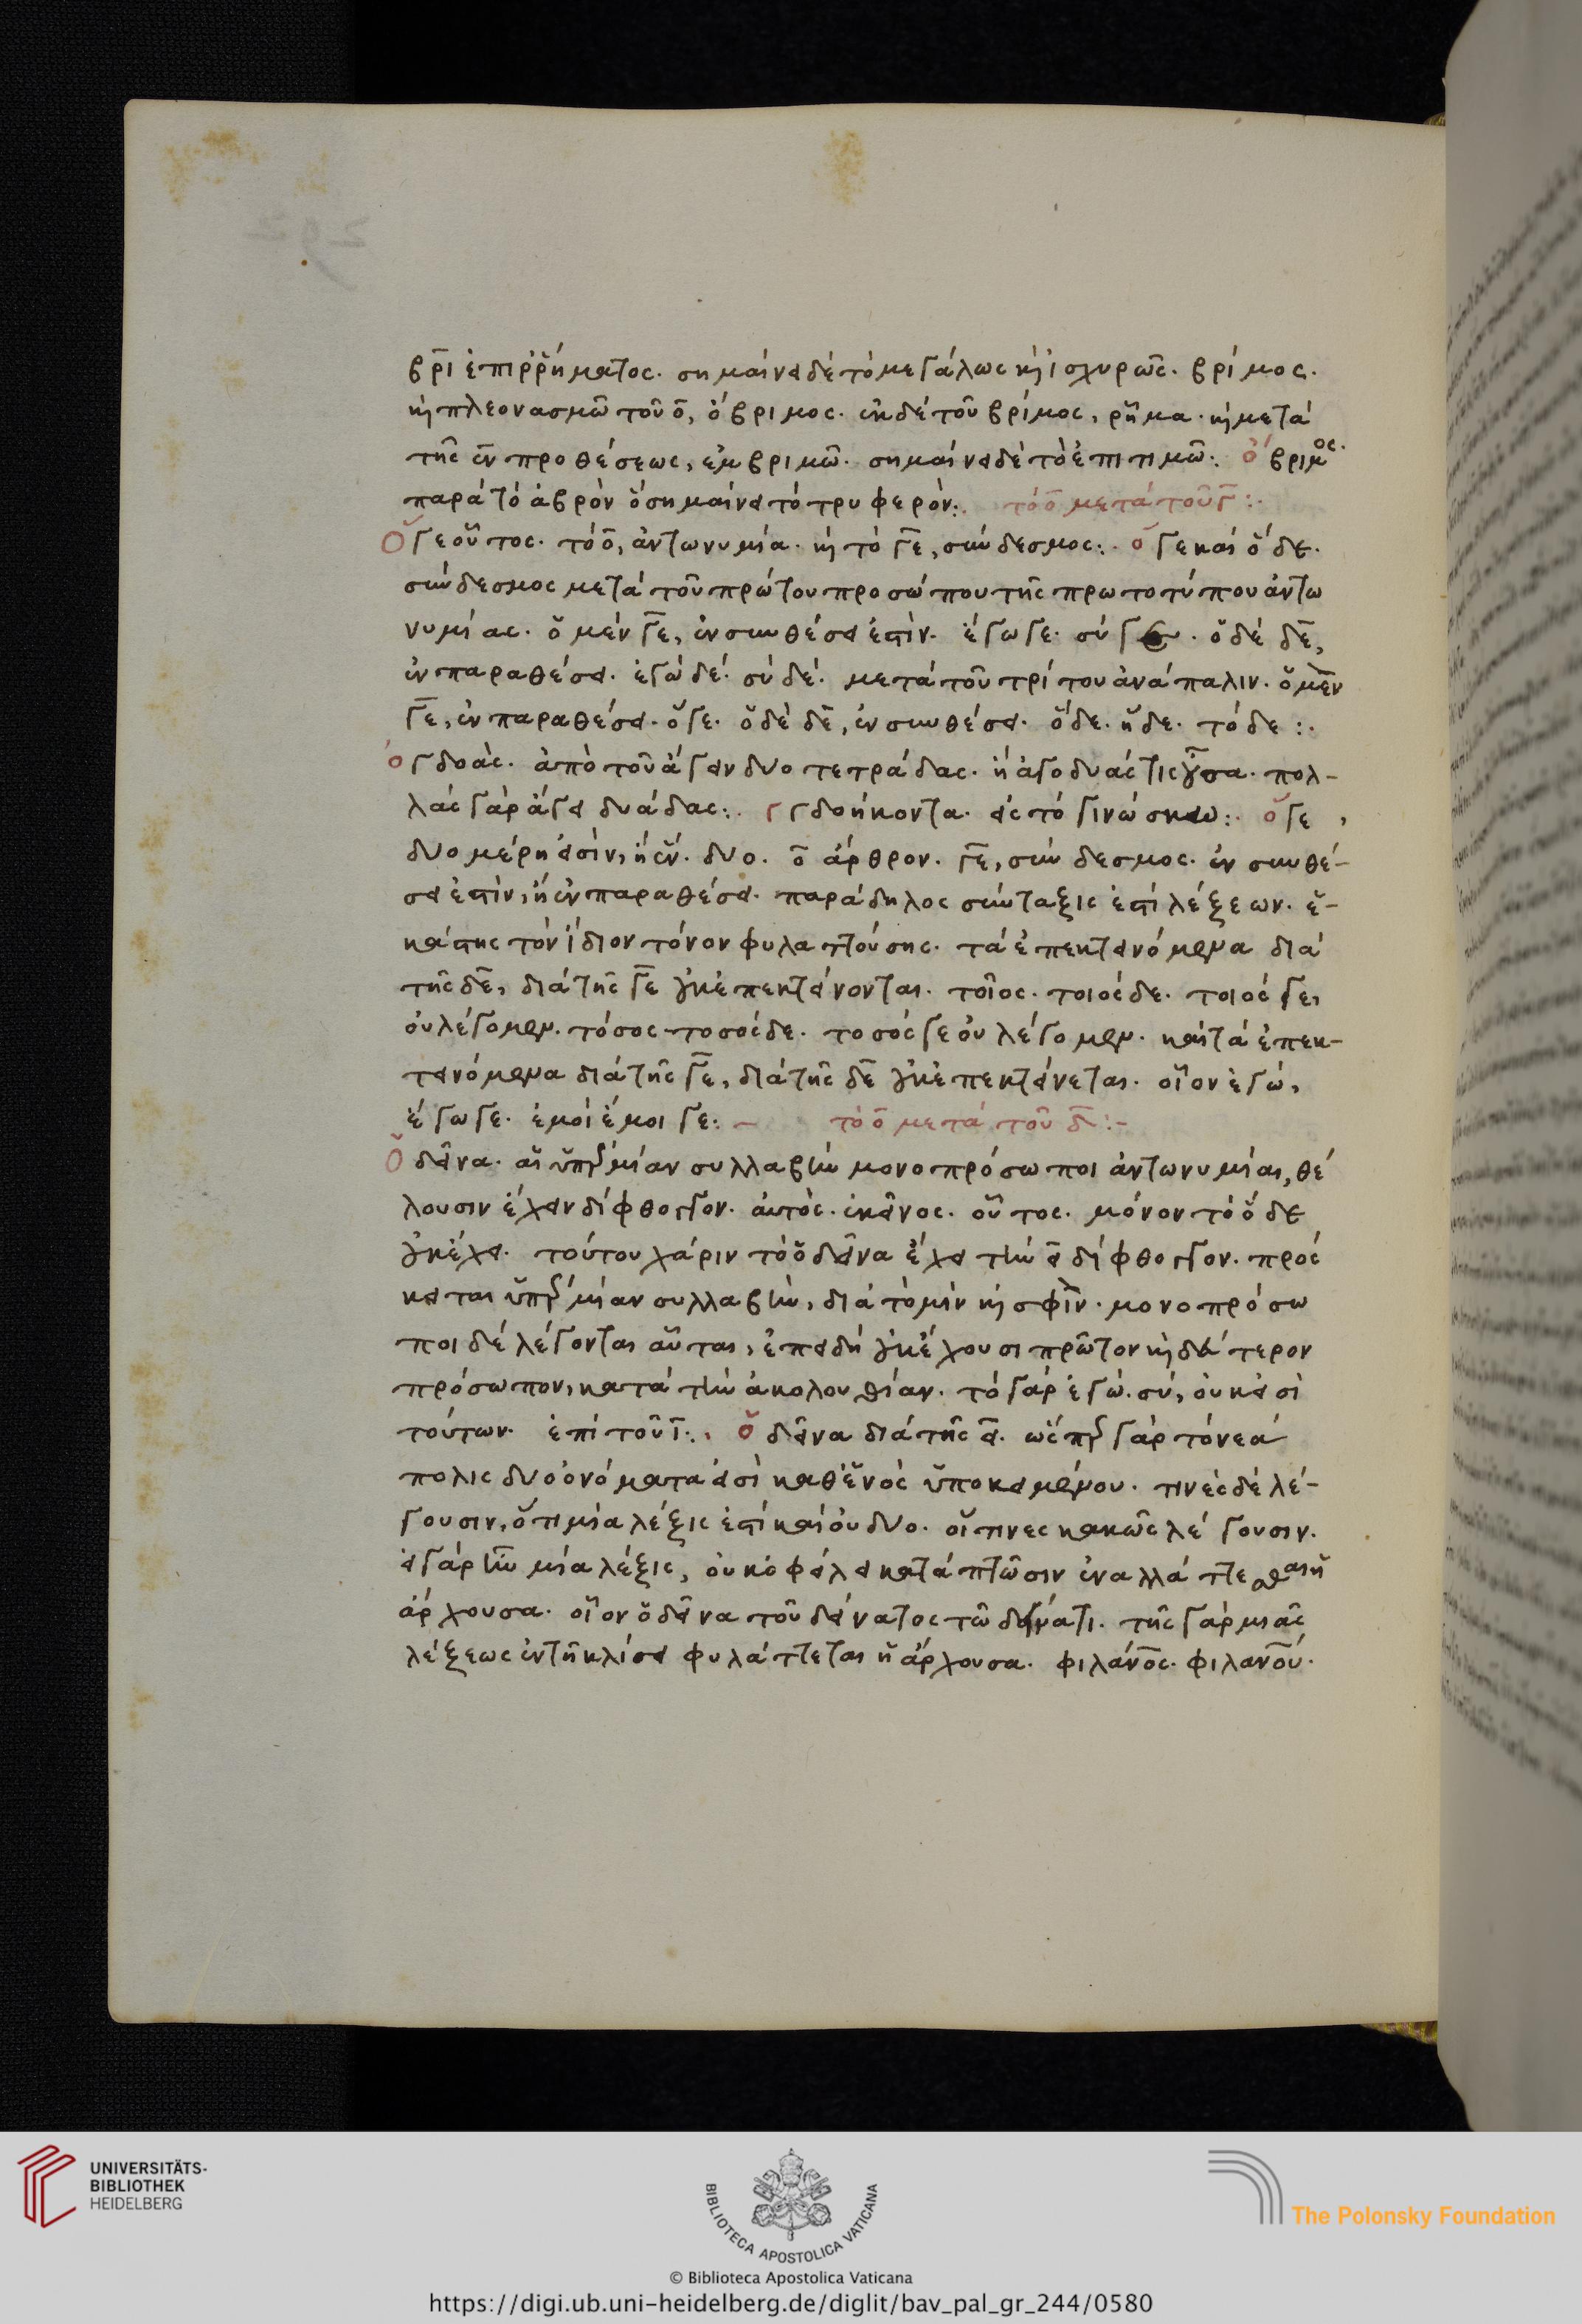 βρῖ ἐπιρρήματος. σημαίνει δὲ τὸ μεγάλως καὶ ἰσχυρῶς. βρίμος.
καὶ πλεονασμῶ τοῦ ο̄, ὄβριμος. ἐκ δὲ τοῦ βρίμος, ρῆμα. καὶ μετὰ
τῆς ἐν προθέσεως, ἐμβριμῶ. σημαίνει δὲ τὸ ἐπιτιμῶ:. ὄβριμος.
παρὰ τὸ ἁβρὸν ὃ σημαίνει τὸ τρυφερόν:. τὸ ο̄ μετὰ τοῦ γ̄:.
Ὅγε οὗτος. τὸ ο̄, ἀντωνυμία. καὶ τὸ γε̄, σύνδεσμος:. ὅγε καὶ ὅδε.
σύνδεσμος μετὰ τοῦ πρώτου προσώπου τῆς πρωτοτύπου ἀντω
νυμίας. ὁ μέν γε̄, ἐν συνθέσει ἐστίν. ἔγωγε. σύγε. ὁ δὲ δε̄,
ἐν παραθέσει. ἐγὼ δέ. σὺ δέ. μετὰ τοῦ τρίτου ἀνάπαλιν. ὁ μὲν
γε̄, ἐν παραθέσει. ὅγε. ὁ δὲ δε̄, ἐν συνθέσει. ὅδε. ἥδε. τόδε:.
ὀγδοάς. ἀπὸ τοῦ ἄγειν δύο τετράδας. ἢ ἀγοδυάς τις οὖσα. πολ-
λὰς γὰρ ἄγει δυάδας:. γδοήκοντα. εἰς τὸ γινώσκω:. ὅγε,
δύο μέρη εἰσὶν, ἢ ἕν. δύο. ο̄ ἄρθρον. γε̄, σύνδεσμος. ἐν συνθέ-
σει ἐστὶν, ἢ ἐν παραθέσει. παράδηλος σύνταξις ἐπὶ λέξεων. ἑ-
κάστης τὸν ἴδιον τόνον φυλαττούσης. τὰ ἐπεκτεινόμενα διὰ
τῆς δε̄, διὰ τῆς γε̄ οὐκ ἐπεκτείνονται. τοῖος. τοιόσδε. τοιόσγε,
οὐ λέγομεν. τόσος τοσόσδε. τοσόσγε οὐ λέγομεν. καὶ τὰ ἐπεκ-
τεινόμενα διὰ τῆς γε̄, διὰ τῆς δε̄ οὐκ ἐπεκτείνεται. οἷον ἐγώ,
ἔγωγε. ἐμοὶ ἔμοιγε:- τὸ ο̄ μετὰ τοῦ δ̄:-
Ὁ δεῖνα. αἱ ὑπὲρ μίαν συλλαβὴν μονοπρόσωποι ἀντωνυμίαι, θέ
λουσιν ἔχειν δίφθογγον. αὐτός. ἐκεῖνος. οὗτος. μόνον τὸ ὅδε
οὐκ ἔχει. τούτου χάριν τὸ ὁ δεῖνα ἔχει τὴν εῑ δίφθογγον. πρόσ
κειται ὑπὲρ μίαν συλλαβὴν, διὰ τὸ μὶν καὶ σφὶν. μονοπρόσω
ποι δὲ λέγονται αὗται, ἐπειδὴ οὐκ ἔχουσι πρῶτον καὶ δεύτερον
πρόσωπον, κατὰ τὴν ἀκολουθίαν. τὸ γὰρ ἐγώ. σύ, οὐκ εἰσὶ
τούτων. ἐπὶ τοῦ ῑ:. ὁ δεῖνα διὰ τῆς εῑ. ὥσπερ γὰρ τὸ νεά
πολις δύο ὀνόματα εἰσὶ καθ' ἑνὸς ὑποκειμένου. τινὲς δὲ λέ-
γουσιν, ὅτι μία λέξις ἐστὶ καὶ οὐ δύο. οἵτινες κακῶς λέγουσιν.
εἰ γὰρ ἦν μία λέξις, οὐκ ὄφειλε κατὰ πτῶσιν ἐναλλάττεσθαι ἡ
ἄρχουσα. οἷον ὁ δεῖνα τοῦ δείνατος τῶ δείνατι. τῆς γὰρ μιᾶς
λέξεως ἐν τῆ κλίσει φυλάττεται ἡ ἄρχουσα. φιλάνος. φιλανου.
UNIVERSITÄTS-
BIBLIOTHEK
HEIDELBERG
BIBLIOTECA APOSTOLICA VATICANA
The Polonsky Foundation
© Biblioteca Apostolica Vaticana
https://digi.ub.uni-heidelberg.de/diglit/bav_pal_gr_244/0580